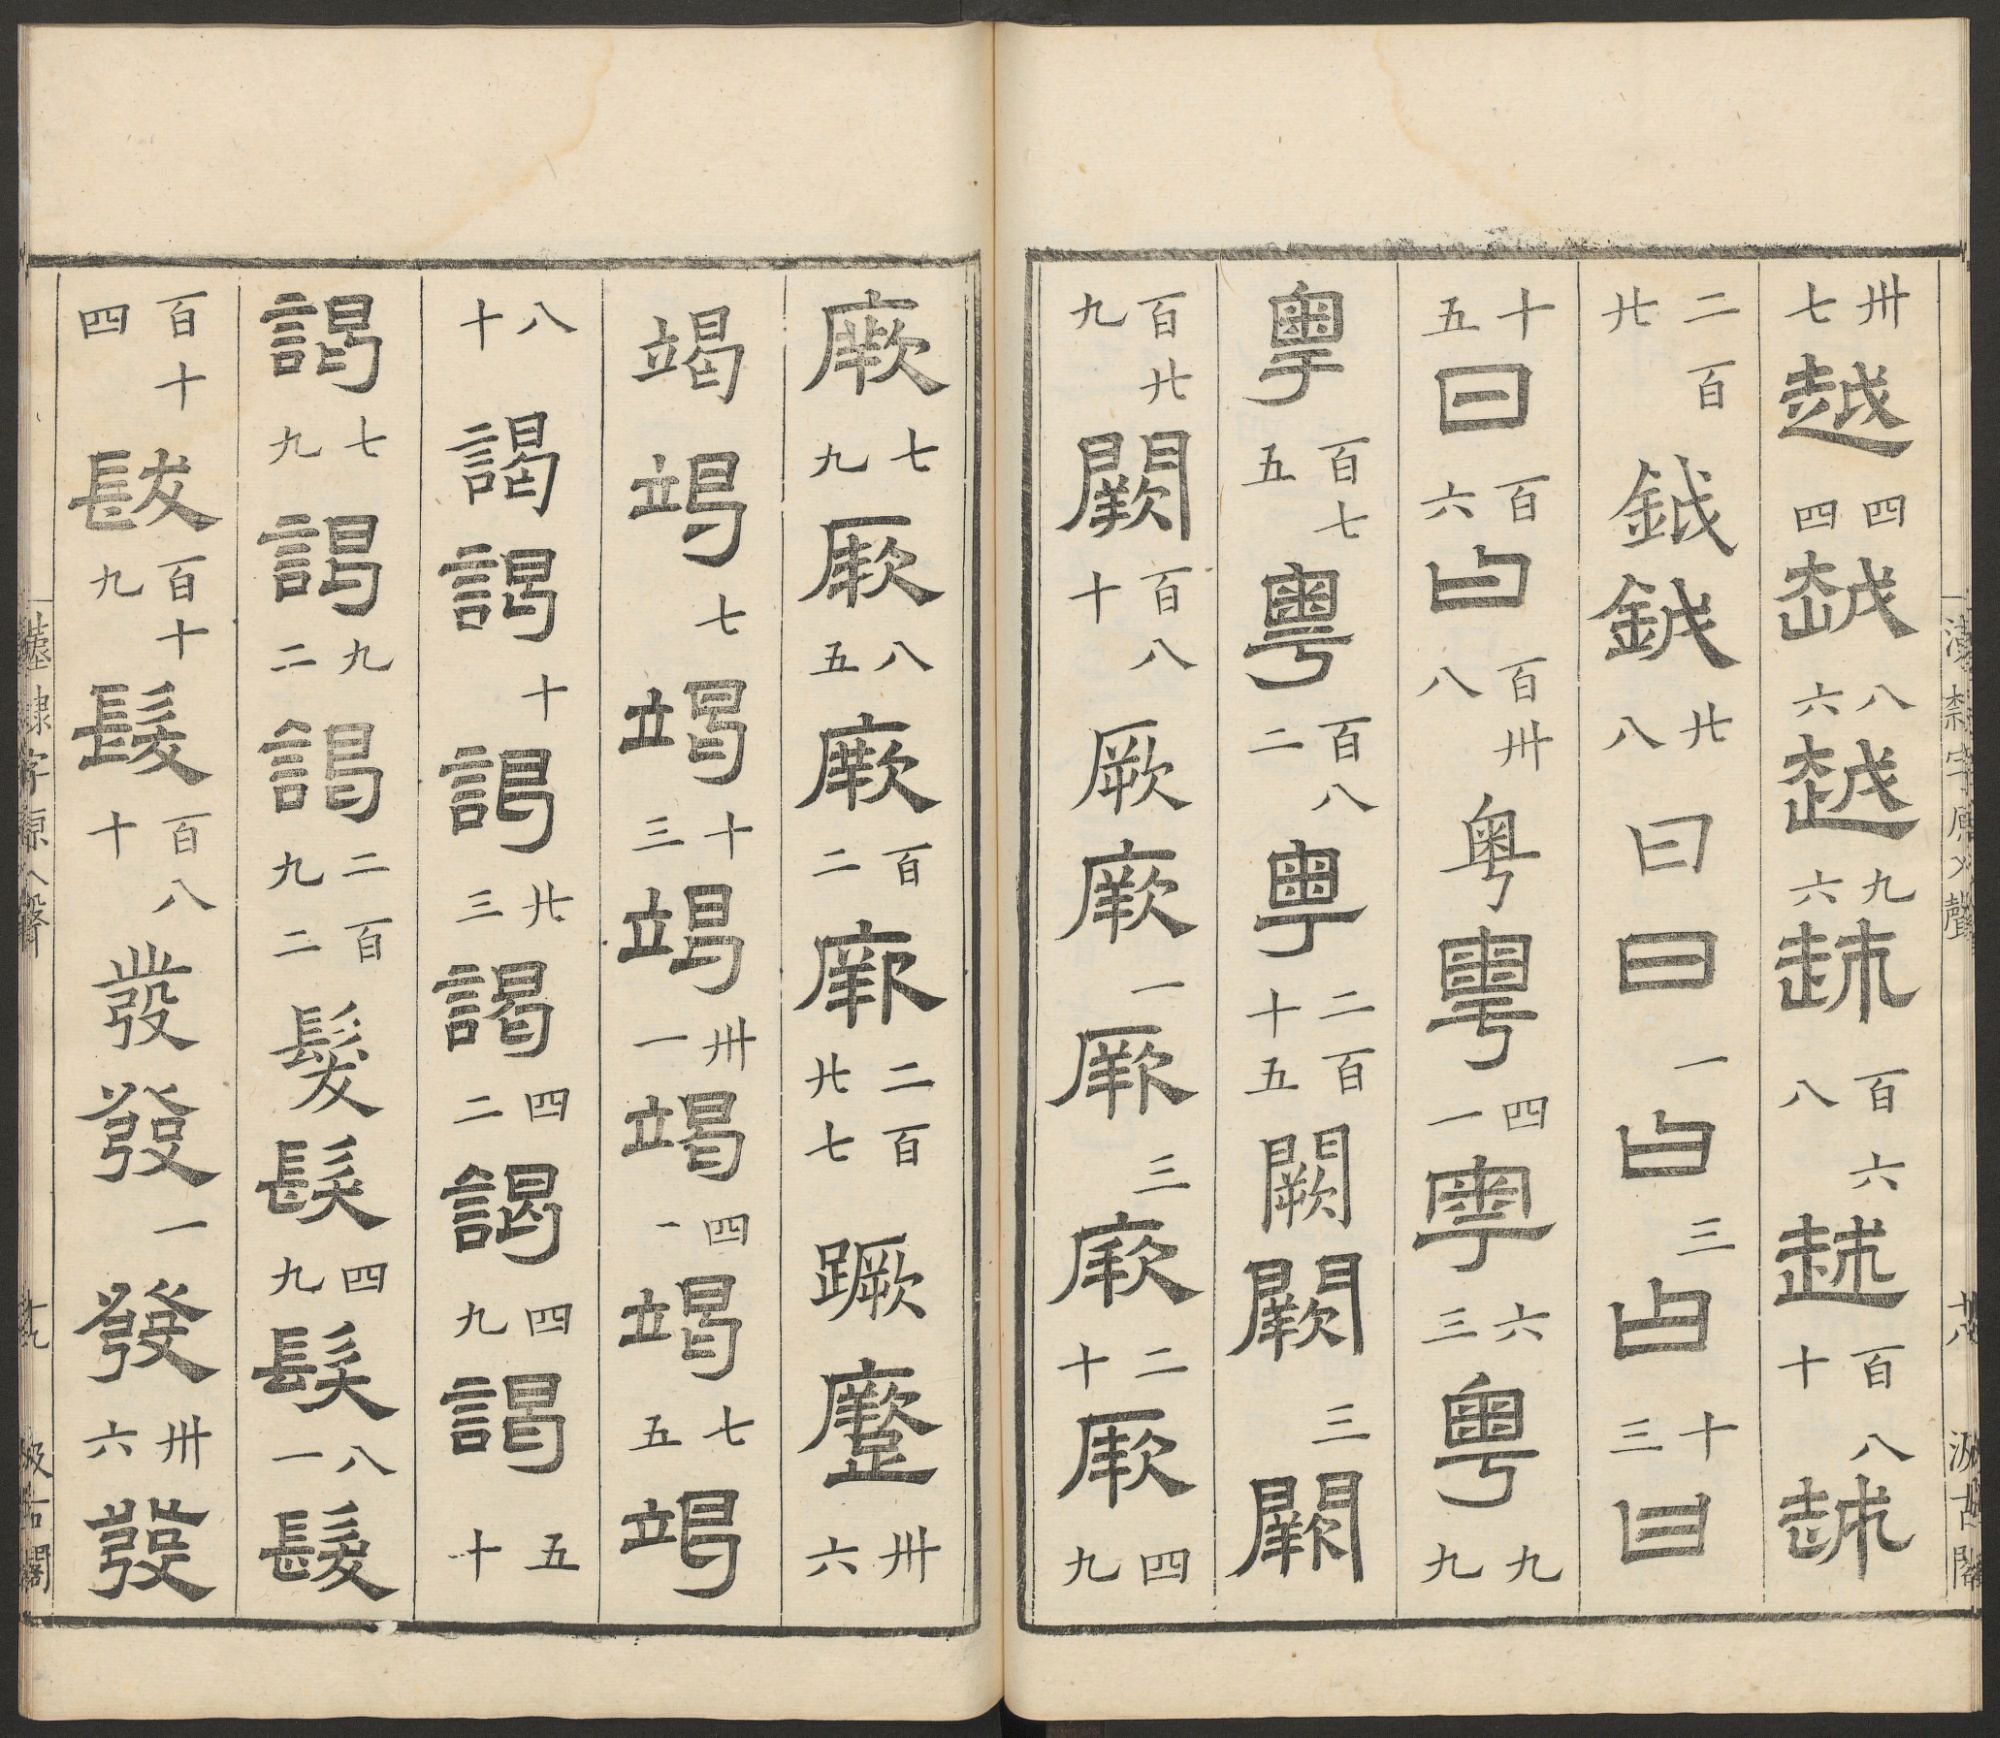 漢隸字原入聲 十八 汲古閣
卅七越四四越八六越九六越百六八越百八十越
二百廿鉞鉞廿八曰曰一曰三曰十三曰
十五曰百六曰百卅八粵粵四一粵六三粵九九
粵百七五粵百八二粵二百十五闕闕三闕
百廿九闕百八十厥厥一厥三厥二十厥四九
厥七九厥八五厥百二厥二百廿七蹶蹷卅六
竭竭七竭十三竭卅一竭四一竭七五竭
八十謁謁十謁廿三謁四二謁四九謁五十
謁七九謁九二謁二百九二髮髮四九髮八一髮
百十四髮百十九髮百八十發發一發卅六發
漢隸字源入聲 十九 汲古閣